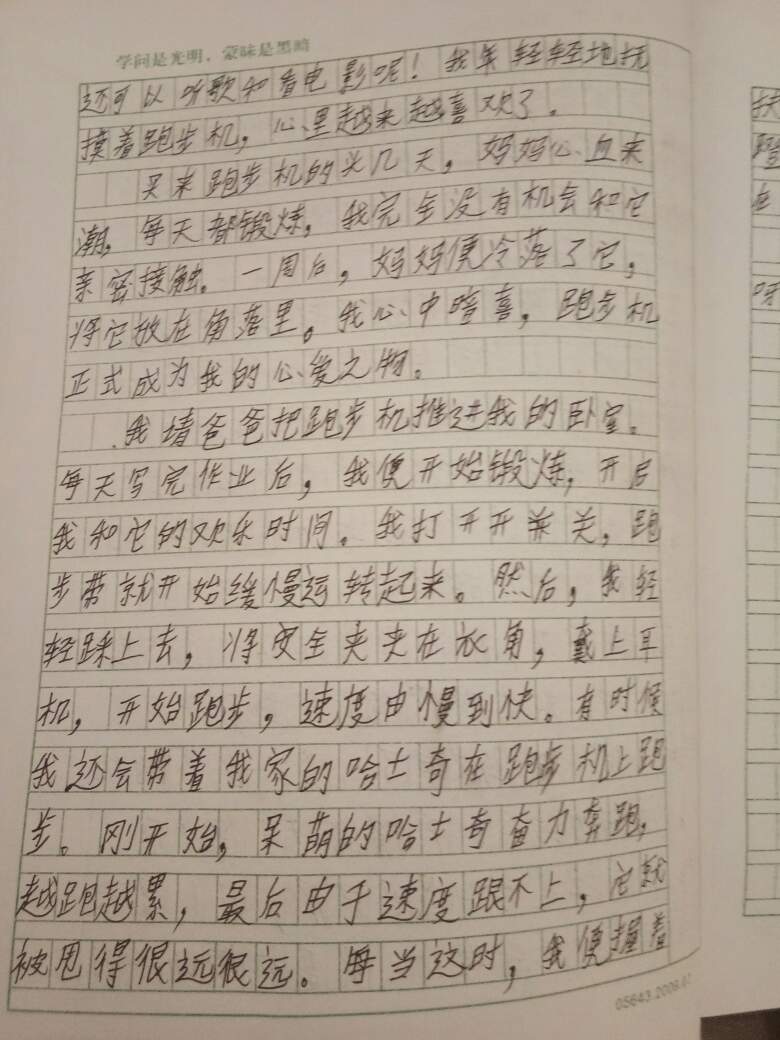 学问是光明，蒙昧是黑暗
还可以听歌和看电影呢！我年轻轻地抚
摸着跑步机，心里越来越喜欢了。
买来跑步机的头几天，妈妈心血来
潮，每天都锻炼，我完全没有机会和它
亲密接触。一周后，妈妈便冷落了它，
将它放在角落里。我心中暗喜，跑步机
正式成为我的心爱之物。
我请爸爸把跑步机推进我的卧室。
每天写完作业后，我便开始锻炼，开启
我和它的欢乐时间。我打开开关，跑
步带就开始缓慢运转起来。然后，我轻
轻踩上去，将安全夹夹在衣角，戴上耳
机，开始跑步，速度由慢到快。有时候
我还会带着我家的哈士奇在跑步机上跑
步。刚开始，呆萌的哈士奇奋力奔跑，
越跑越累，最后由于速度跟不上，它就
被甩得很远很远。每当这时，我便握着
05643.2009.0
扶
蹬
在
呀